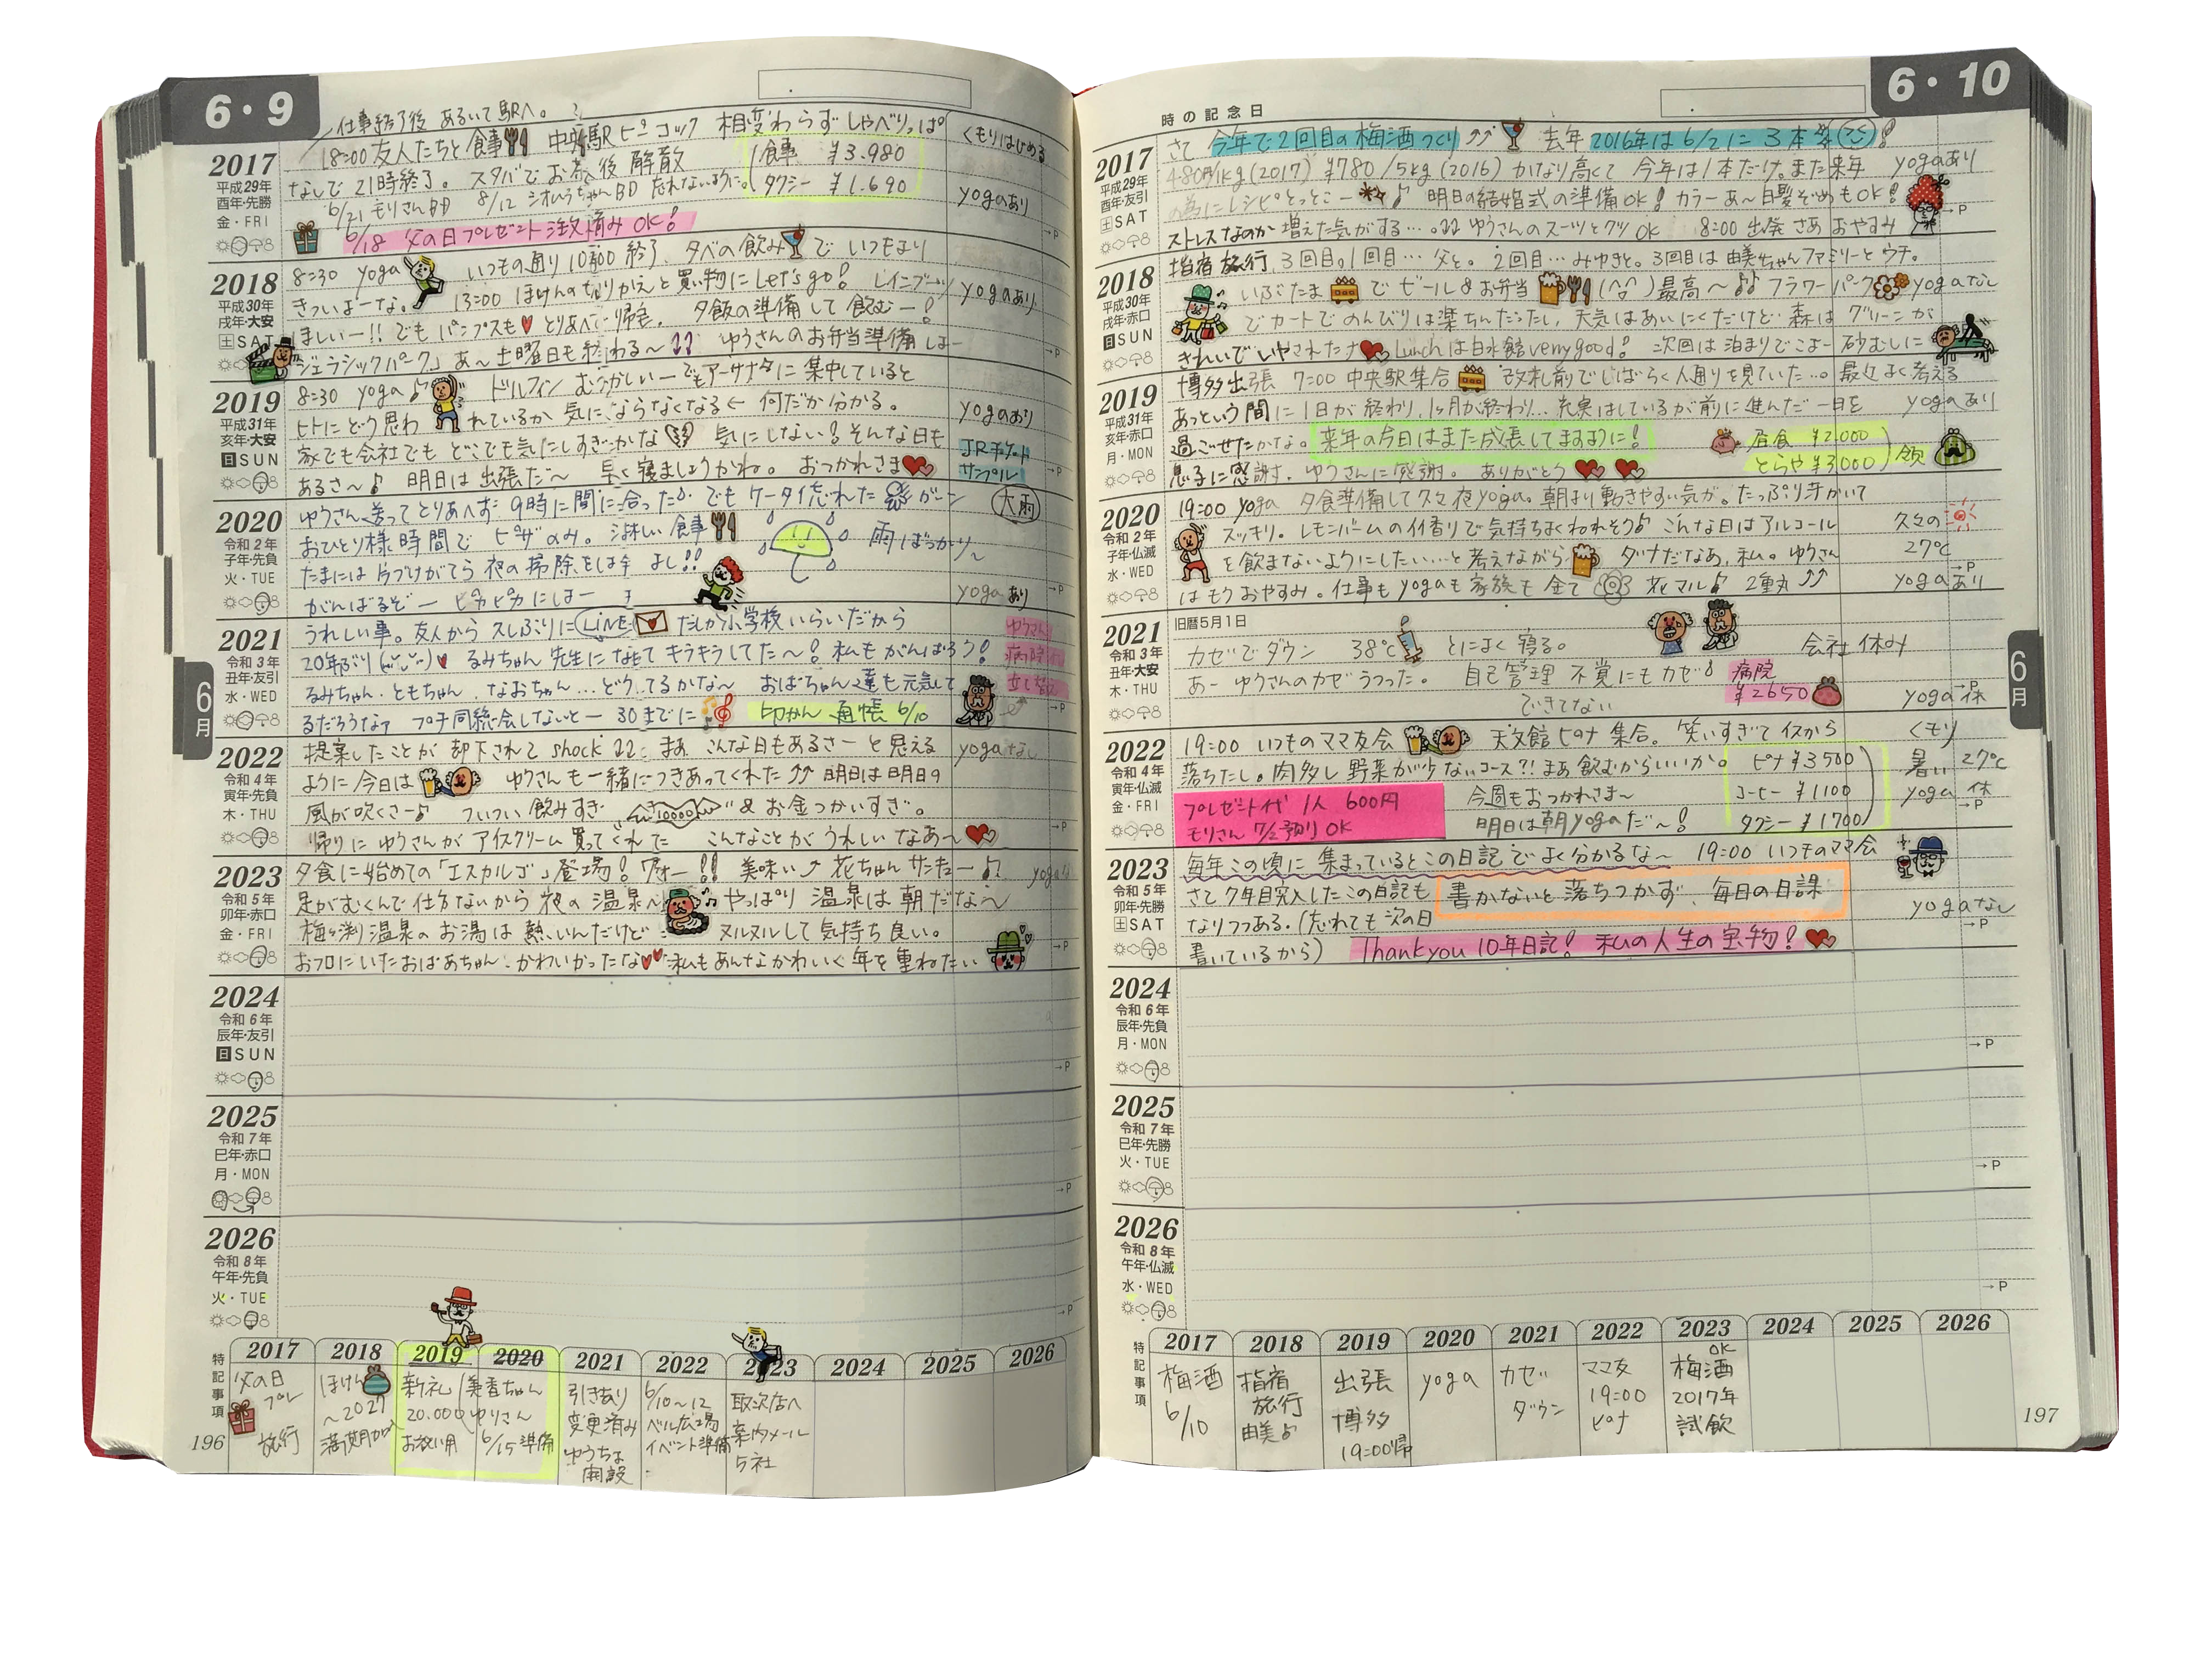 6・9
仕事終了後 あるいて駅へ。
2017
平成29年
酉年・先勝
金・FRI
18:00 友人たちと食事 中央駅ピーコック 相変わらず しゃべりっぱ
なしで 21時終了。 スタバでお茶後 解散
食事 ¥3.980
タクシー ¥1.690
6/21 モリさんBD 8/12 BD 忘れないように。
6/18 父の日プレゼント注文済み OK!
くもりはじめる
yogaあり
→P
2018
平成30年
戌年・大安
土 SAT
8:30 yoga いつもの通り 10:00 終了、夕べの飲みで いつもより
きついよーな。 13:00 ほけんのきりかえと買い物にLet's go! レインブーツ
ほしいー!! でも パンプスも とりあへず帰宅。 夕飯の準備して飲むー!
「ジュラシックパーク」 あ〜土曜日も終わる〜 ゆうさんのお弁当準備しよー
yogaあり
→P
2019
平成31年
亥年・大安
日 SUN
8:30 yoga♪ ドルフィン むづかしいー でもアーサナタに集中していると
ヒトにどう思われているか 気にならなくなる← 何だか分かる。
家でも会社でも どこでも気にしすぎかな 気にしない! そんな日も
あるさ〜♪ 明日は 出張だ〜 早く寝ましょうかね。 おつかれさま
yogaあり
JRチケット
サンプル
→P
2020
令和2年
子年・先負
火・TUE
ゆうさん送って とりあへず 9時に間に合った♪ でも ケータイ忘れた ガーン
おひとり様時間で ピザのみ。 淋しい食事 雨ばっかり〜
たまには片づけがてら 夜の掃除をしよ よし!!
がんばるぞー ピカピカにしよー
大雨
yogaあり
→P
2021
令和3年
丑年・友引
水・WED
うれしい事。友人から 久しぶりに LINE だしか小学校いらいだから
20年ぶり るみちゃん 先生になってキラキラしてた〜! 私もがんばろう!
るみちゃん・ともちゃん、なおちゃん…どうしてるかな〜 おばちゃん達も元気して
るだろうなァ プチ同窓会しないとー 30までに 印かん 通帳 6/10
ゆうさん
立て替え
→P
2022
令和4年
寅年・先負
木・THU
提案したことが 却下されて shock まぁ こんな日もあるさーと思える
ように今日は ゆうさんも一緒につきあってくれた 明日は明日の
風が吹くさー♪ ついつい飲みすぎ 10000 & お金つかいすぎ。
帰りに ゆうさんが アイスクリーム買ってくれた こんなことが うれしい なあ〜
yogaなし
→P
2023
令和5年
卯年・赤口
金・FRI
夕食に始めての「エスカルゴ」登場! !! 美味い 花ちゃん サンキュー♪
足がむくんで仕方ないから 夜の温泉へ♪ やっぱり 温泉は朝だな〜
梅ヶ渕温泉のお湯は熱いんだけど ヌルヌルして気持ち良い。
お風呂にいたおばあちゃん、かわいかったな 私もあんなかわいく年を重ねたい
→P
2024
令和6年
辰年・友引
日 SUN
→P
2025
令和7年
巳年・赤口
月・MON
→P
2026
令和8年
午年・先負
火・TUE
→P
6月
特記事項
2017 2018 2019 2020 2021 2022 2023 2024 2025 2026
父の日
プレ
旅行
ほけん
〜2027
満期
新札
20.000
お祝い用
美香ちゃん
ゆりさん
6/15 準備
引きあり
変更済み
ゆうちょ
開設
6/10〜12
ベル広場
イベント準備
取次店へ
案内メール
5社
196
6・10
時の記念日
2017
平成29年
酉年・友引
土 SAT
さて 今年で2回目の梅酒つくり 去年 2016年は 6/21に 3本
480円/1kg(2017) ¥780/5kg(2016) かなり高くて 今年は1本だけ。また来年
の為にレシピとっとこー♪ 明日の結婚式の準備OK! カラーあ〜白髪ぞめもOK!
ストレスなのか 増えた気がする…。 ゆうさんのスーツとクツ OK 8:00 出発 さあ おやすみ
yogaあり
→P
2018
平成30年
戌年・赤口
日 SUN
指宿旅行 3回目。1回目…父と。 2回目…みゆきと。3回目は由美ちゃんファミリーとウチ。
いぶたま でビール&お弁当 最高〜♪♪ フラワーパーク
でカートでのんびりは楽ちんだったし、天気はあいにくだけど 森はグリーンが
きれいで いやされた♪ Lunchは白水館 very good! 次回は泊まりでこよー 砂むしに
yogaなし
2019
平成31年
亥年・赤口
月・MON
博多出張 7:00 中央駅集合 改札前でしばらく人通りを見ていた…。 最近よく考える
あっという間に1日が終わり、1ヶ月が終わり… 充実はしているが前に進んだ一日を
過ごせたかな。来年の今日はまた成長してますように!
息子に感謝。ゆうさんに感謝。 ありがとう
昼食 ¥2.000
とらや ¥3.000
領
yogaあり
2020
令和2年
子年・仏滅
水・WED
19:00 yoga 夕食準備して久々夜yoga。朝より動きやすい気が。たっぷり汗かいて
スッキリ。レモンバームの香りで気持ちよくねれそう♪ こんな日はアルコール
を飲まないようにしたい…と考えながら ダメだなあ、私。ゆうさん
はもうおやすみ。仕事もyogaも家族も全て 花マル♪ 2重丸
久々の
27℃
yogaあり
→P
2021
令和3年
丑年・大安
木・THU
旧暦5月1日
カゼでダウン 38℃ とにかく寝る。
あー ゆうさんのカゼ うつった。 自己管理 不覚にもカゼ
できてない
病院
¥2650
会社休み
yoga休
→P
2022
令和4年
寅年・仏滅
金・FRI
19:00 いつものママ友会 天文館 ピナ 集合。 笑いすぎて イスから
落ちたし。肉多し 野菜が少ないコース?! まあ飲むからいいか。
プレゼント代 1人 600円
モリさん 7/2 預り OK
今週もおつかれさま〜
明日は朝yogaだ〜!
ピナ ¥3500
コーヒー ¥1100
タクシー ¥1700
くもり
暑い 27℃
yoga 休
→P
2023
令和5年
卯年・先勝
土 SAT
毎年この頃に 集まっているとこの日記でよく分かるな〜 19:00 いつものママ会
さて 7年目突入したこの日記も 書かないと落ちつかず、毎日の日課に
なりつつある。(忘れても 次の日
書いているから) Thankyou 10年日記! 私の人生の宝物!
yogaなし
→P
2024
令和6年
辰年・先負
月・MON
→P
2025
令和7年
巳年・先勝
火・TUE
→P
2026
令和8年
午年・仏滅
水・WED
→P
6月
特記事項
2017 2018 2019 2020 2021 2022 2023 2024 2025 2026
梅酒
6/10
指宿
旅行
由美
出張
博多
19:00帰
yoga
カゼ
ダウン
ママ友
19:00
ピナ
OK
梅酒
2017年
試飲
197